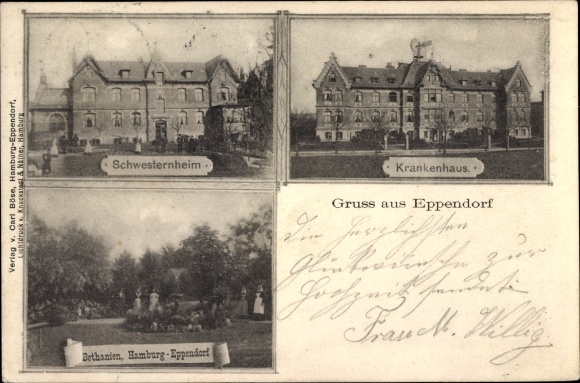 Verlag v. Carl Böse, Hamburg-Eppendorf,
Lichtdruck v. Knackstedt & Näther, Hamburg
Schwesternheim
Krankenhaus.
Gruss aus Eppendorf
Die herzlichsten
Glückwünsche zur
Hochzeit sendet
Frau M. Willig
Bethanien, Hamburg-Eppendorf